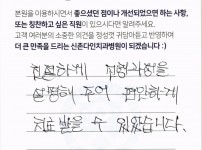 본원을 이용하시면서 좋으셨던 점이나 개선되었으면 하는 사항,
또는 칭찬하고 싶은 직원이 있으시다면 말씀해주세요.
고객 여러분의 소중한 의견을 정성껏 귀담아듣고 반영하여
더 큰 만족을 드리는 신촌다인치과병원이 되겠습니다 :)
친절하게 진행사항을
설명해 주어 편안하게
치료 받을 수 있었습니다.